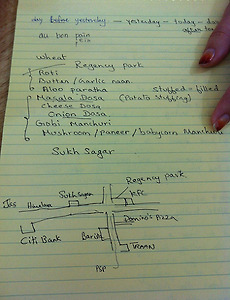 day before yesterday – yesterday – today – day
after
au bon pain
wheat
Regency park
Roti
Butter/Garlic naan
Aloo paratha stuffed = filled
Masala Dosa (Potato stuffing)
Cheese Dosa
Onion Dosa
Gobi Manchuri
Mushroom/Paneer/babycorn Manchuri
Sukh Sagar
Regency park
Sukh Sagar
KFC
Domino's Pizza
Citi Bank
Barista
PSP